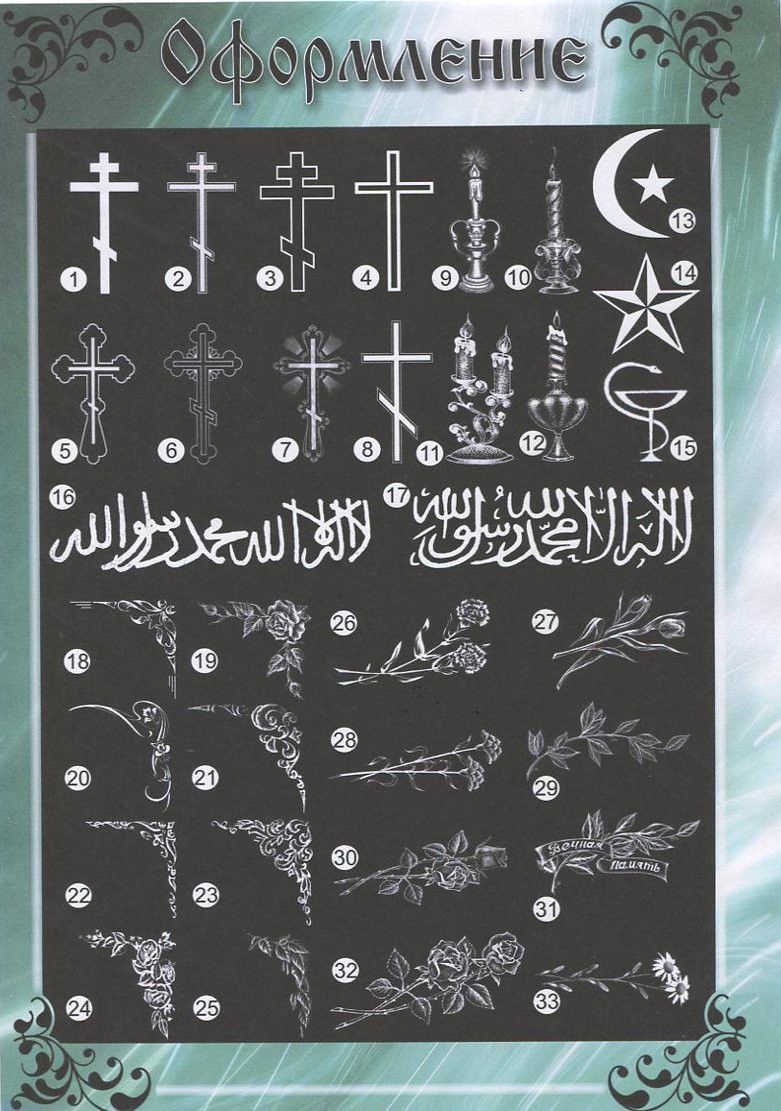 Оформление
1 2 3 4 9 10 13
14
5 6 7 8 11 12 15
16
لا اله الا الله محمد رسول الله
17
لا اله الا الله محمد رسول الله
18 19 26 27
20 21 28 29
22 23 30
Вечная
память
31
24 25 32 33